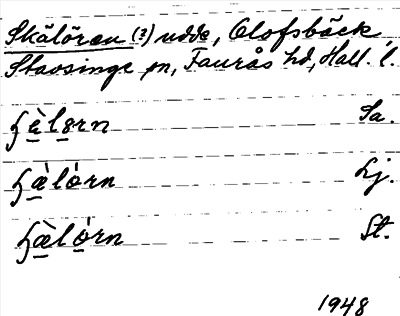 Skälören (?) udde, Olofsbäck
Stavsinge sn, Faurås hd, Hall. l.
ʃὲlørn Sa.
ʃæ̀lórn Lj.
ʃæ̀lórn St.
1948